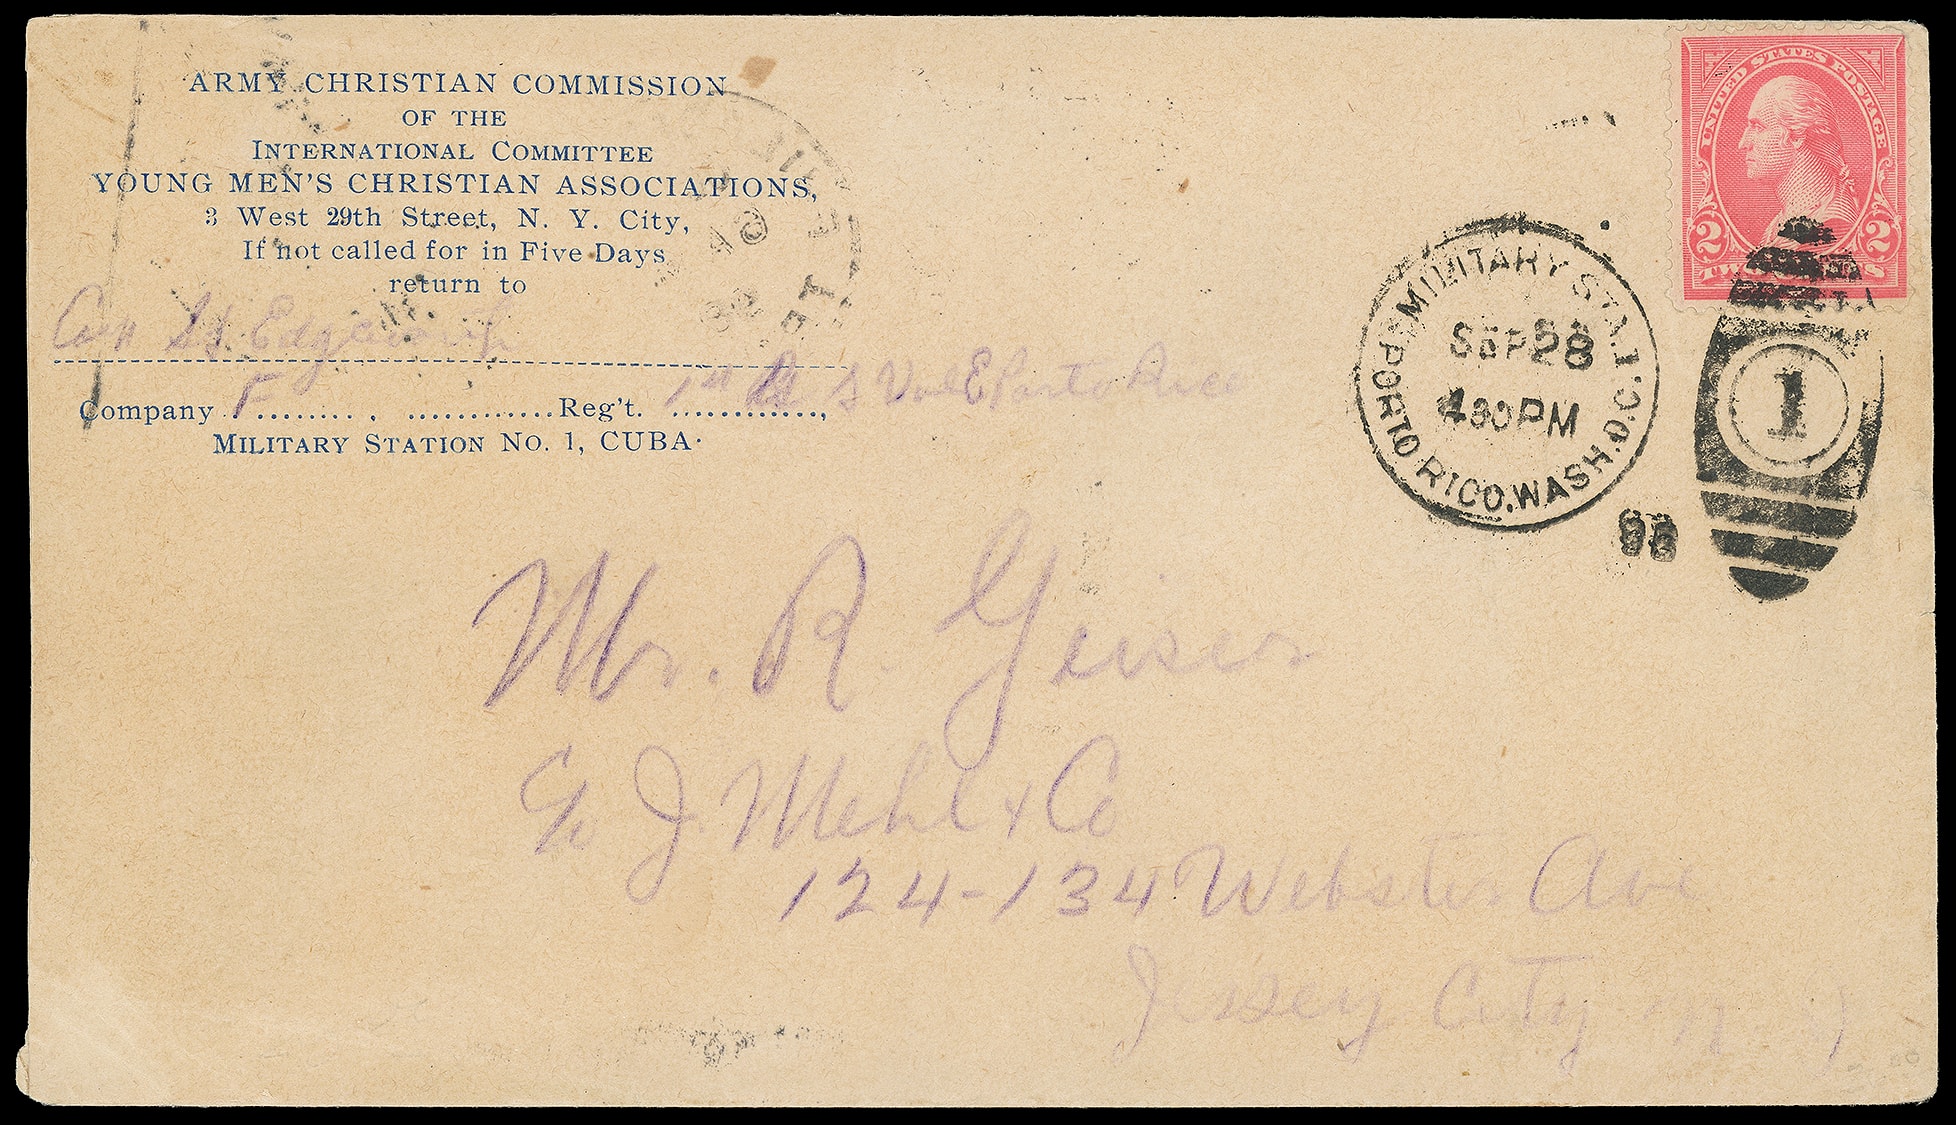 ARMY CHRISTIAN COMMISSION
OF THE
INTERNATIONAL COMMITTEE
YOUNG MEN'S CHRISTIAN ASSOCIATIONS,
3 West 29th Street, N. Y. City,
If not called for in Five Days
return to
Edgeworth
Company F Reg't. 1st U S Vol E Porto Rico
MILITARY STATION No. 1, CUBA.
UNITED STATES POSTAGE
2 2
MILITARY STA. 1
SEP 28
4 30 PM
PORTO RICO, WASH. D.C.
98
1
Mr. R. Geiser
c/o J. Mehl & Co
124-134 Webster Ave
Jersey City N J